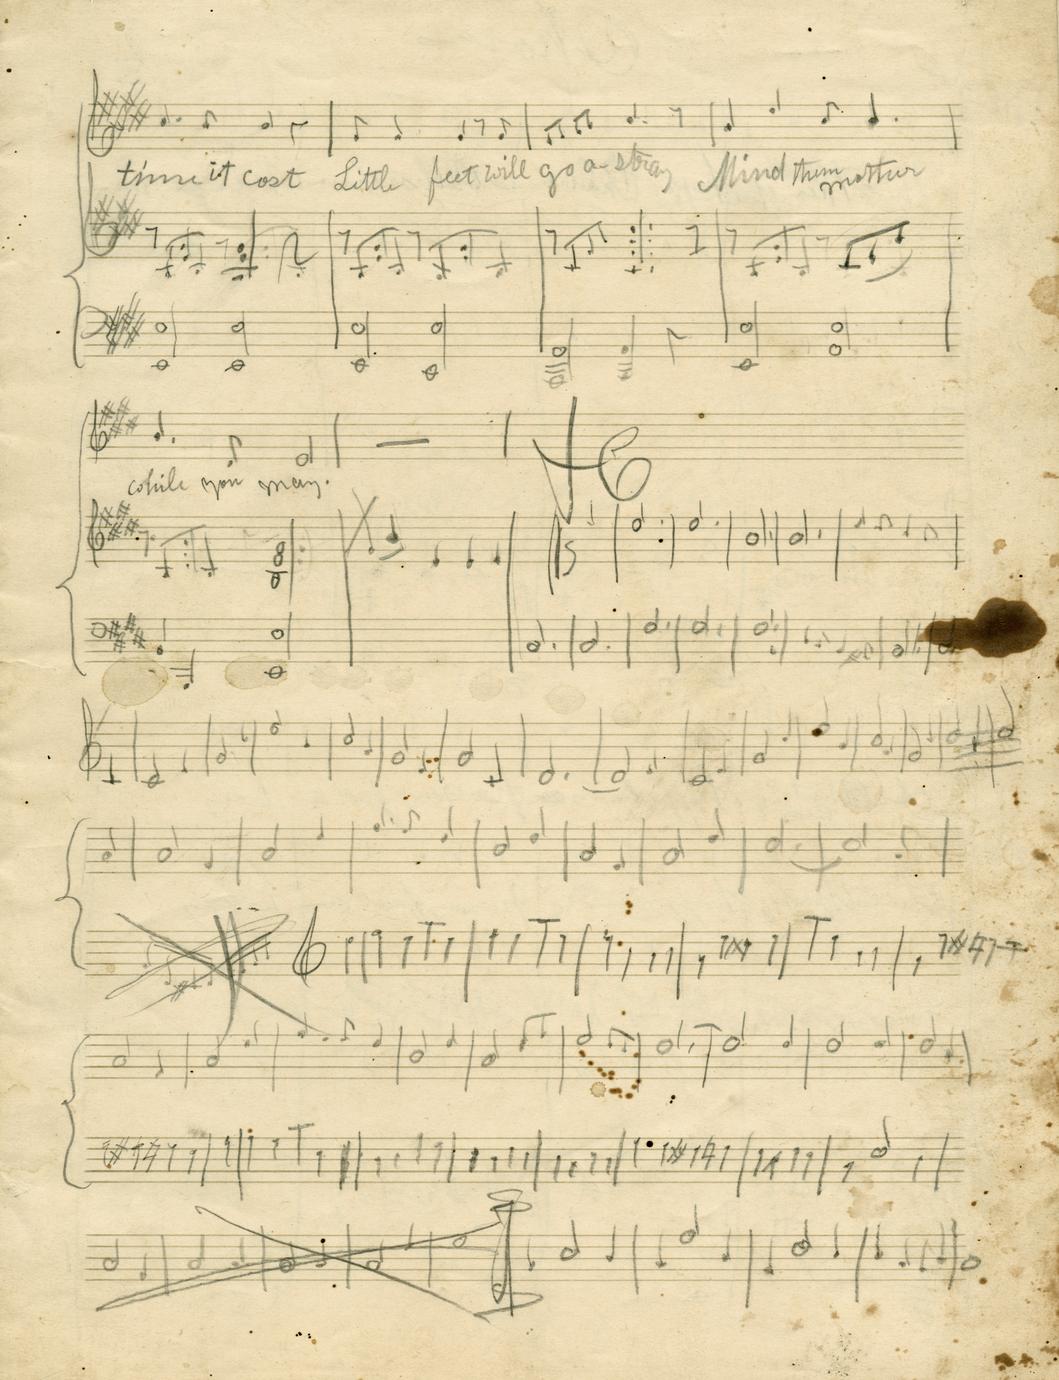 time it cost Little feet will go a-stray Mind them mother
while you may.